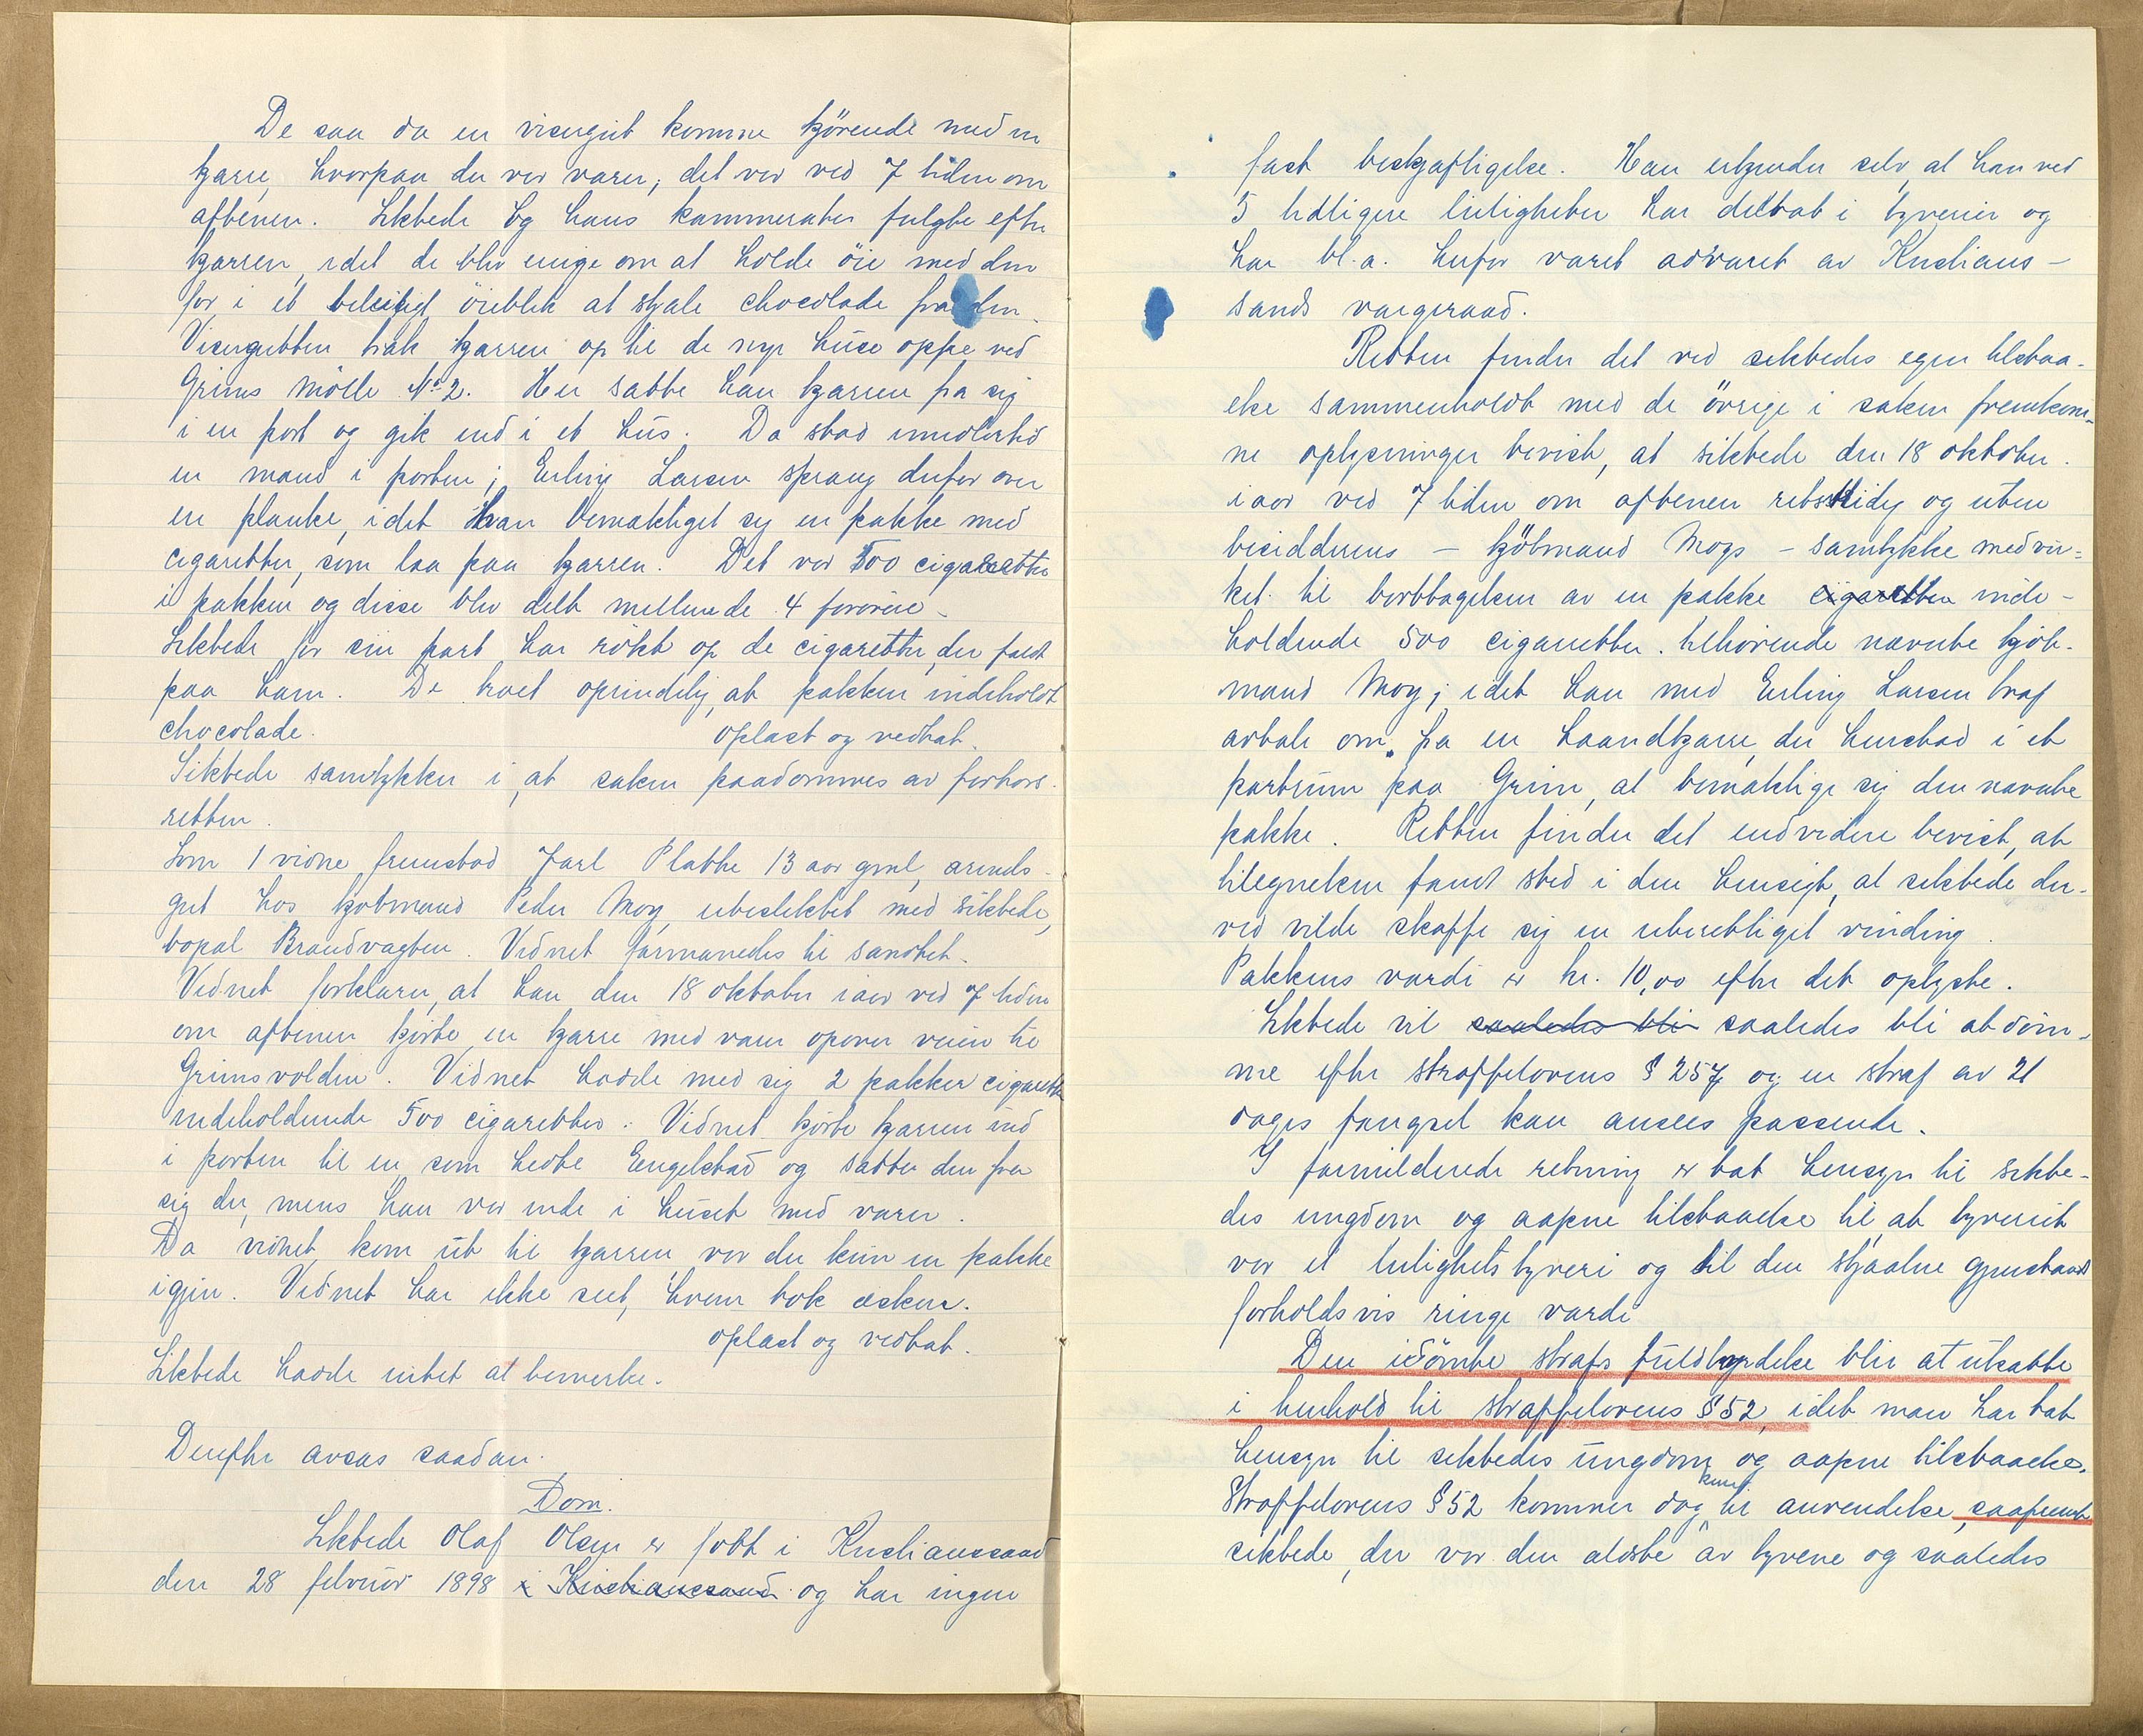 De saa da en visergut komme kjörende med en
kjærre, hvorpaa der var varer; det var ved 7 tiden om
aftenen. Siktede og hans kammerater fulgte efter
kjærren, idet de blev enige om at holde öie med den
for i et beleiligt öieblik at stjæle chocolade fra den.
Visergutten trak kjærren op til de nye huse oppe ved
Grims Mölle No 2. Her satte han kjærren fra sig
i en port og gik ind i et hus. Da stod imidlertid
en mand i porten; Erling Larsen sprang derfor over
en planke, idet han bemæktiget sig en pakke med
cigaretter, som laa paa kjærren. Det var 500 cigaretter
i pakken og disse blev delt mellem de 4
Siktede for sin part har rökt op de cigaretter, der faldt
paa ham. De troet oprindelig, at pakken indeholdt
chocolade. Oplæst og vedtat.
Siktede samtykker i, at saken paadömmes av forhörs-
retten.
Som 1 vidne fremstod Jarl Platte 13 aar gml, ærends-
gut hos kjöbmand Peder Moy, ubeslektet med siktede,
bopæl Brandvagten. Vidnet formanedes til sandhet.
Vidnet forklarer, at han den 18 oktober iaar ved 7 tiden
om aftenen kjörte en kjærre med varer opover veien til
Grimsvolden. Vidnet hadde med sig 2 pakker cigaretter
indeholdende 500 cigaretter. Vidnet kjörte kjærren ind
i porten til en, som hedte Engelstad og satte den fra
sig der, mens han var inde i huset med varer.
Da vidnet kom ut til kjærren var der kun en pakke
igjen. Vidnet har ikke seet, hvem tok æsken.
Oplæst og vedtat.
Siktede hadde intet at bemerke.
Derefter avsas saadan
Dom.
Siktede Olaf Olsen er födt i Kristianssand
den 28 februar 1898 i Kristianssand og har ingen
fast beskjæftigelse. Han erkjender selv, at han ved
5 tidligere leiligheter har deltat i tyverier og
har bl.a. herfor været advaret av Kristians-
sands vergeraad.
Retten finder det ved siktedes egen tilstaa-
else sammenholdt med de övrige i saken fremkom-
ne oplysninger bevist, at siktede den 18 oktober
iaar ved 7 tiden om aftenen retstridig og uten
besidderens – kjöbmand Moys – samtykke medvir-
ket til borttagelsen av en pakke cigaretter inde-
holdende 500 cigaretter. tilhörende nævnte kjöb-
mand Moy; idet han med Erling Larsen traf
avtale om, fra en haandkjærre, der henstod i et
portrum paa Grim, at bemæktige sig den nævnte
pakke. Retten finder det endvidere bevist, at
tilegnelsen fandt sted i den hensigt, at siktede der-
ved vilde skaffe sig en uberettiget vinding.
Pakkens værdi er kr. 10,00 efter det oplyste.
Siktede vil saaledes bli saaledes bli at döm-
me efter straffelovens § 257 og en straf av 21
dages fængsel kan ansees passende.
I formildende retning er tat hensyn til sikte-
des ungdom og aapne tilstaaelse til, at tyveriet
var et leilighets tyveri og til den stjaalne gjenstands
forholdsvis ringe værdi
Den idömte strafs fuldbyrdelse blir at utsætte
i henhold til straffelovens § 52, idet man har tat
hensyn til siktedes ungdom og aapne tilstaaelse.
Straffelovens § 52 kommer dog kun til anvendelse, saafremt
siktede, der var den ældste av tyvene og saaledes